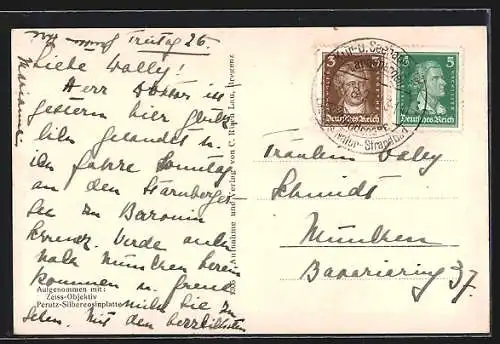 Freitag 26.
Liebe Wally!
Herr Doktor ist
gestern hier glück
lich gelandet u.
ich fahre Sonntag
an den Starnberger
See zu Baronin
Werde auch
nach München herein
kommen u. freue
mich Sie zu
sehen. Mit den herzlichsten
Marianne
Aufgenommen mit:
Zeiss-Objektiv
Perutz-Silbereosinplatte
Aufnahme und Verlag von C. Risch Lau, Bregenz
3
Deutsches Reich
5
Deutsches Reich
Fräulein Wally
Schmidt
München
Bavariaring 37.